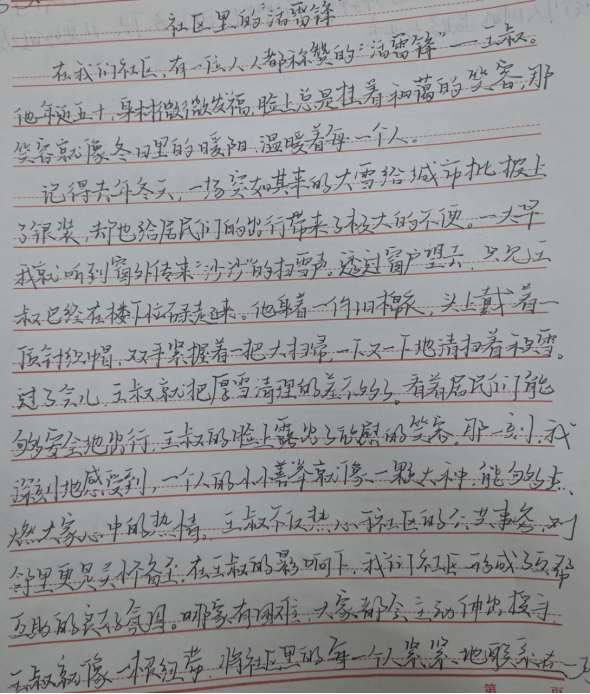 社区里的"活雷锋
在我们社区,有一位人人都称赞的"活雷锋"——王叔。
他年近五十,身材微微发福,脸上总是挂着和蔼的笑容,那
笑容就像冬日里的暖阳,温暖着每一个人。
记得去年冬天,一场突如其来的大雪给城市批披上
了银装,却也给居民们的出行带来了极大的不便。一大早
我就听到窗外传来"沙沙"的扫雪声。透过窗户望去,只见王
叔已经在楼下忙碌起来。他身着一件旧棉衣,头上戴着一
顶针织帽,双手紧握着一把大扫帚,一下又一下地清扫着积雪。
过了会儿,王叔就把厚雪清理的差不多了。看着居民们能
够安全地出行,王叔的脸上露出了欣慰的笑容。那一刻,我
深刻地感受到,一个人的小小善举就像一颗火种,能够点
燃大家心中的热情。王叔不仅热心于社区的公共事务,对
邻里更是关怀备至,在王叔的影响下,我们社区形成了互帮
互助的良好氛围。哪家有困难,大家都会主动伸出援手,
王叔就像一根纽带,将社区里的每一个人紧紧地联系在一
第 页